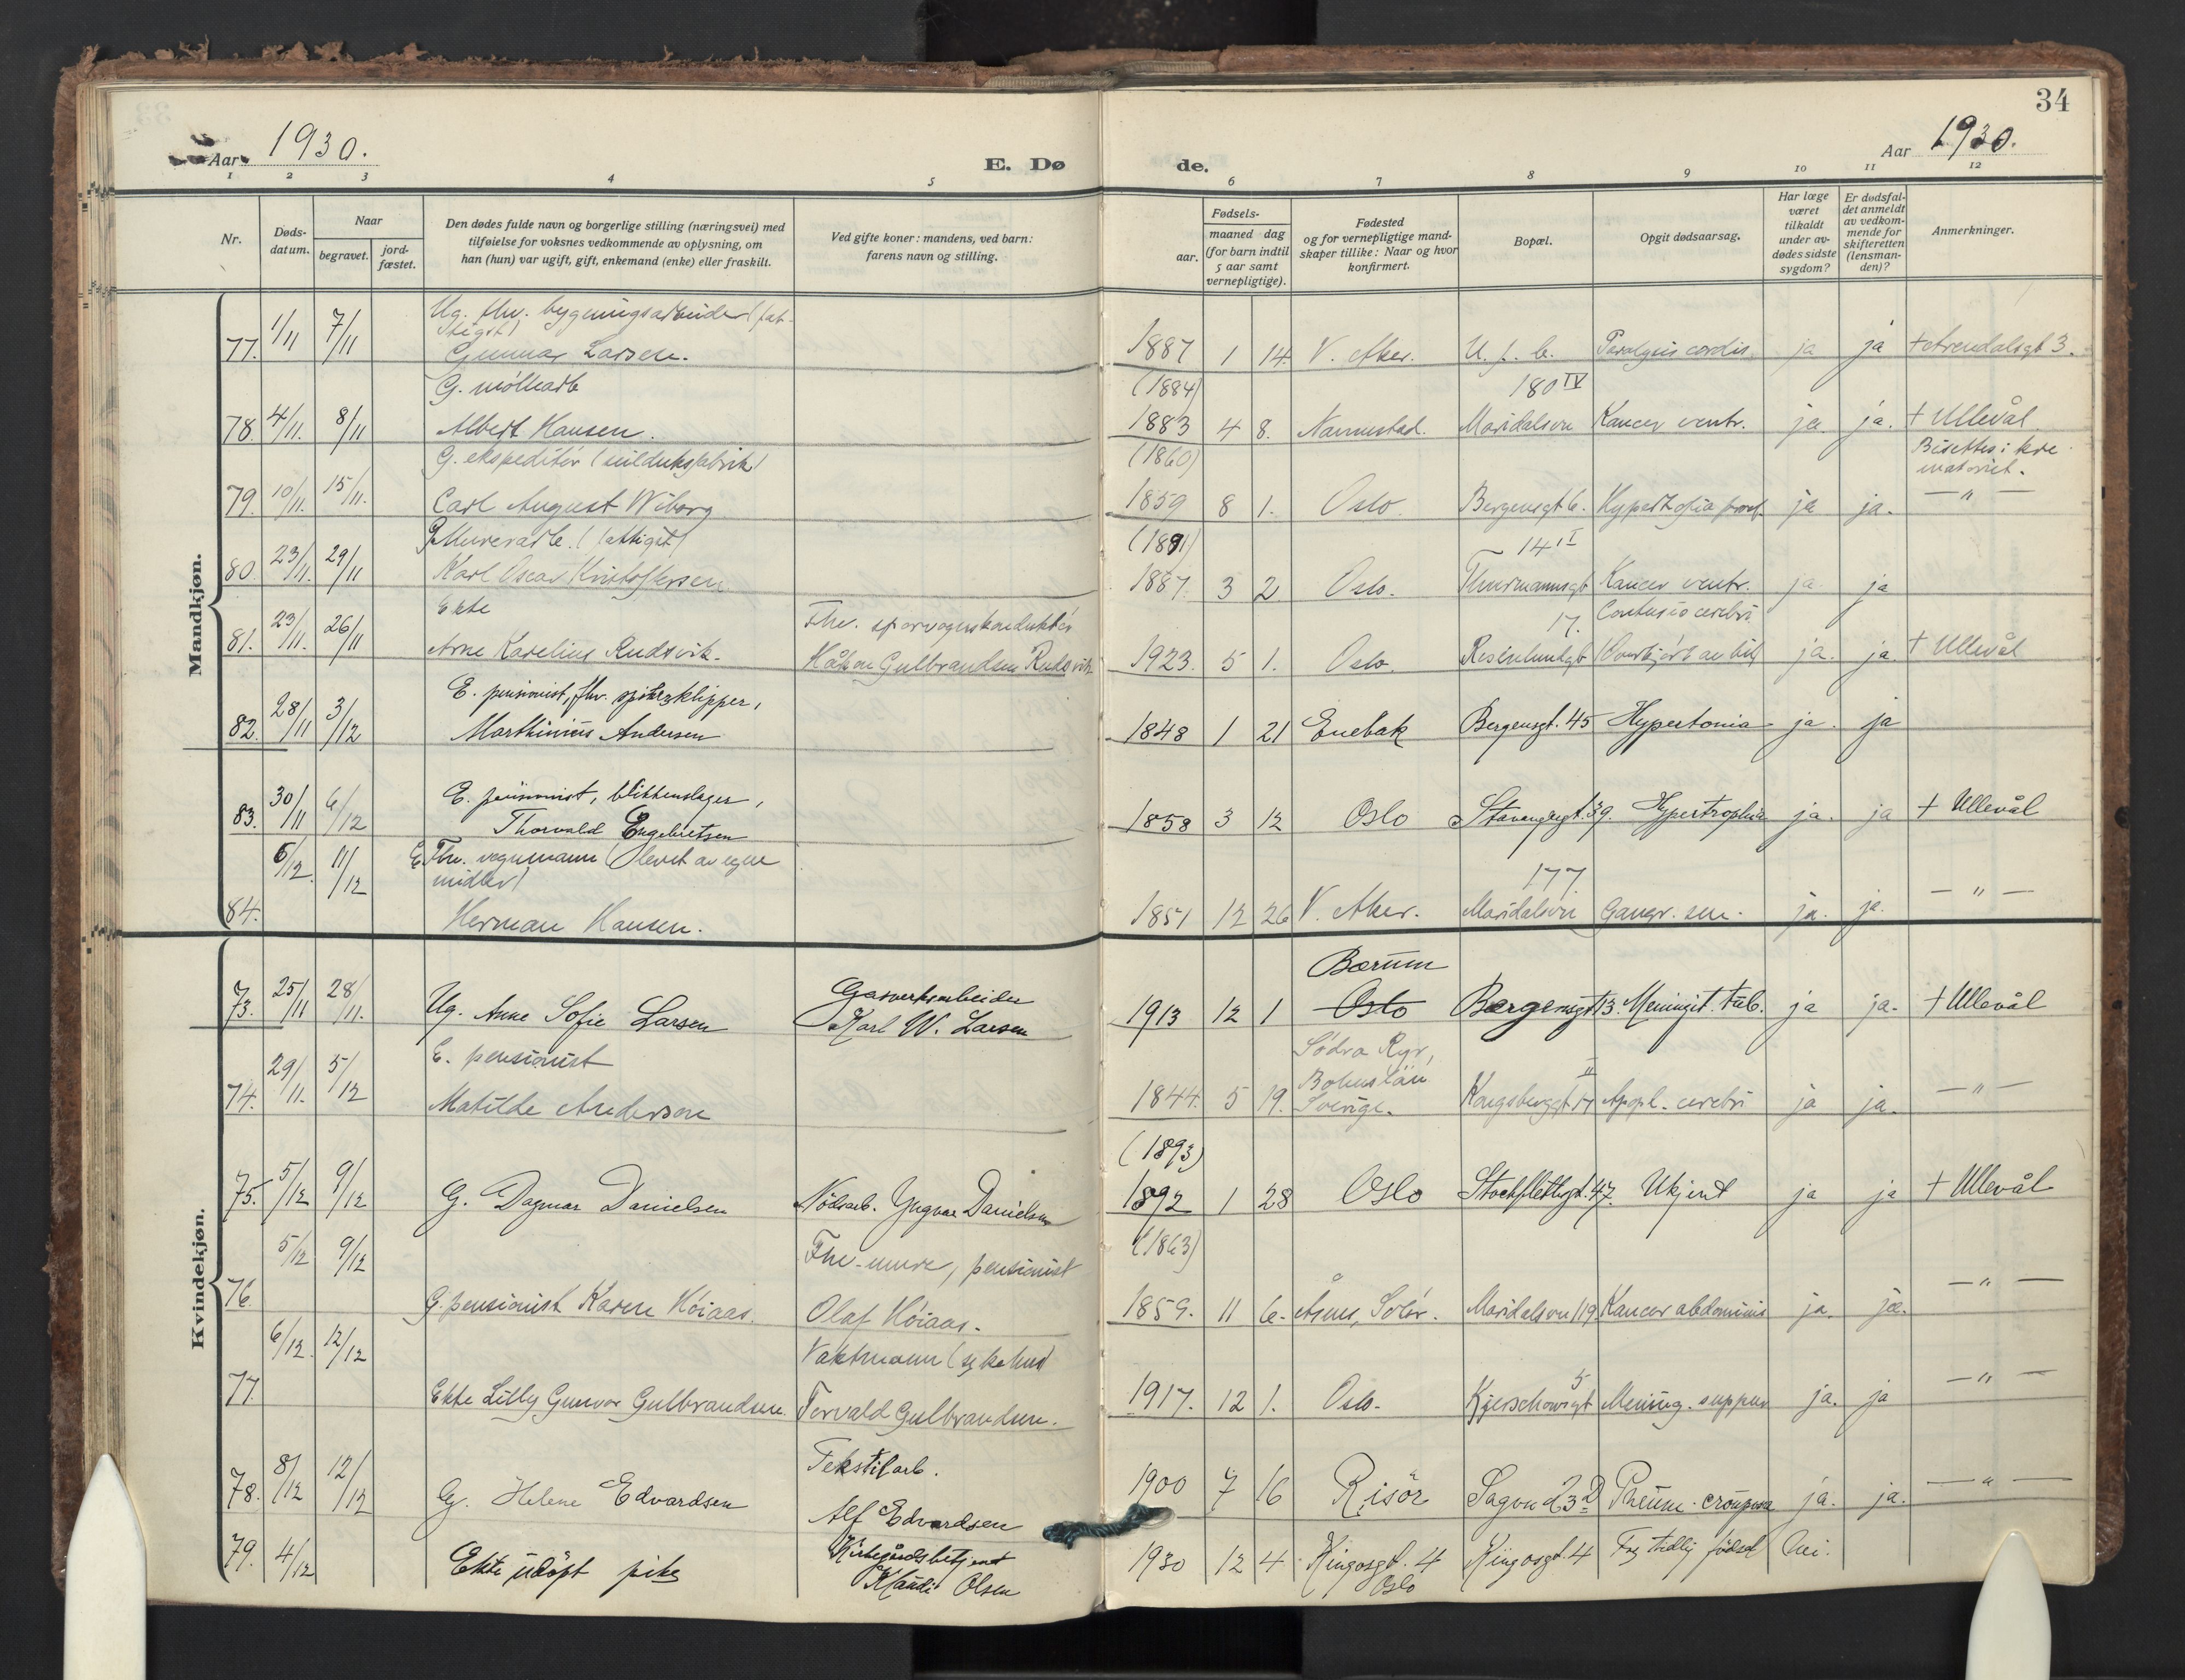 34
Aar 1930.
E. Døde.
Aar 1930.
1 2 3 4 5 6 7 8 9 10 11 12
Nr.
Døds-
datum.
Naar
begravet.
jord-
fæstet.
Den dødes fulde navn og borgerlige stilling (næringsvei) med
tilføielse for voksnes vedkommende av oplysning, om
han (hun) var ugift, gift, enkemand (enke) eller fraskilt.
Ved gifte koner: mandens, ved barn:
farens navn og stilling.
Fødsels-
aar.
maaned dag
(for barn indtil
5 aar samt
vernepligtige).
Fødested
og for vernepligtige mand-
skaper tillike: Naar og hvor
konfirmert.
Bopæl.
Opgit dødsaarsag.
Har læge
været
tilkaldt
under av-
dødes sidste
sygdom?
Er dødsfal-
det anmeldt
av vedkom-
mende for
skifteretten
(lensman-
den)?
Anmerkninger.
Mandkjøn.
Ug. fhv. bygningsarbeider (fat-
tigst)
77. 1/11 7/11 Gunnar Larsen. 1887 1 14. V. Aker. U. f. b. Paralysis cordis ja ja + Arendalsgt 3.
G. møllearb (1884) 180 IV
78. 4/11. 8/11 Albert Hansen. 1883 4 8. Nannestad. Maridalsvn Kancer ventr. ja ja. + Ullevål.
G. ekspeditør (seilduksfabrik) (1860) Bisettes i kre-
matoriet.
79. 10/11. 15/11. Carl August Wiborg 1859 8 1. Oslo. Bergensgt 6. Hypertrofia prost. ja ja. — " —
Murerarb. (fattigst) (1891) 14 I
80. 23/11. 29/11 Karl Oscar Kristoffersen. 1887. 3 2 Oslo. Thurmannsgt Kancer ventr. ja ja
Ekte Fhv. sporvognskonduktør 17. Contusio cerebri
81. 23/11. 26/11 Arne Karelius Rudsvik. Håkon Gulbrandsen Rudsvik 1923. 5 1. Oslo. Rosenlundgt (Overkjørt av bil) ja. ja. + Ullevål
E. pensionist, fhv. spikerklipper,
82. 28/11 3/12 Marthinius Andersen 1848 1 21 Enebak Bergensgt. 45 Hypertonia ja. ja
E. pensionist, blikkenslager,
83. 30/11 6/12 Thorvald Engebretsen 1858 3 12 Oslo Stavangergt. 39. Hypertrophia ja. ja + Ullevål
E. Fhv. vognmann (levet av egne
midler) 177.
84. 5/12. 11/12 Herman Hansen. 1851 12 26 V. Aker. Maridalsvn Gangr. sen. ja. ja. — " —
Kvindekjøn.
Gasverksarbeider Bærum
73. 25/11 28/11. Ug. Anne Sofie Larsen Karl W. Larsen 1913 12 1 Oslo Bergensgt 13. Meningit. tub. ja ja. + Ullevål
E. pensionist Södra Ryr,
Bohuslän II
74. 29/11. 5/12 Matilde Anderson 1844. 5 19. Sverige. Kongsberggt 17 Apopl. cerebri ja ja. — " —
(1893)
75. 5/12 9/12 G. Dagmar Danielsen Nødsarb. Yngvar Danielsen 1892 1 28 Oslo Stockflethsgt. 47. Ukjent ja ja + Ullevål
Fhv. murer, pensionist (1863)
76. 5/12 9/12 G. pensionist Karen Høiaas. Olaf Høiaas. 1859. 11 6. Åsnes, Solør. Maridalsvn 119. Kancer abdominis ja. ja. — " —
Vaktmann (sykehus) 5
77. 6/12. 12/12 Ekte Lilly Gunvor Gulbrandsen. Torvald Gulbrandsen. 1917. 12 1. Oslo. Kjerschowsgt Mening. suppur ja. ja — " —
Tekstilarb.
78. 8/12 12/12 G. Helene Edvardsen Alf Edvardsen 1900 7 16 Risør Sagvn 23 D Pneum. crouposa ja. ja. — " —
Kirkegårdsbetjent
79. 4/12 Ekte udøpt pike Klaudi Olsen 1930 12 4 Kingosgt. 4 Kingosgt. 4 For tidlig fødsel Nei.
Oslo